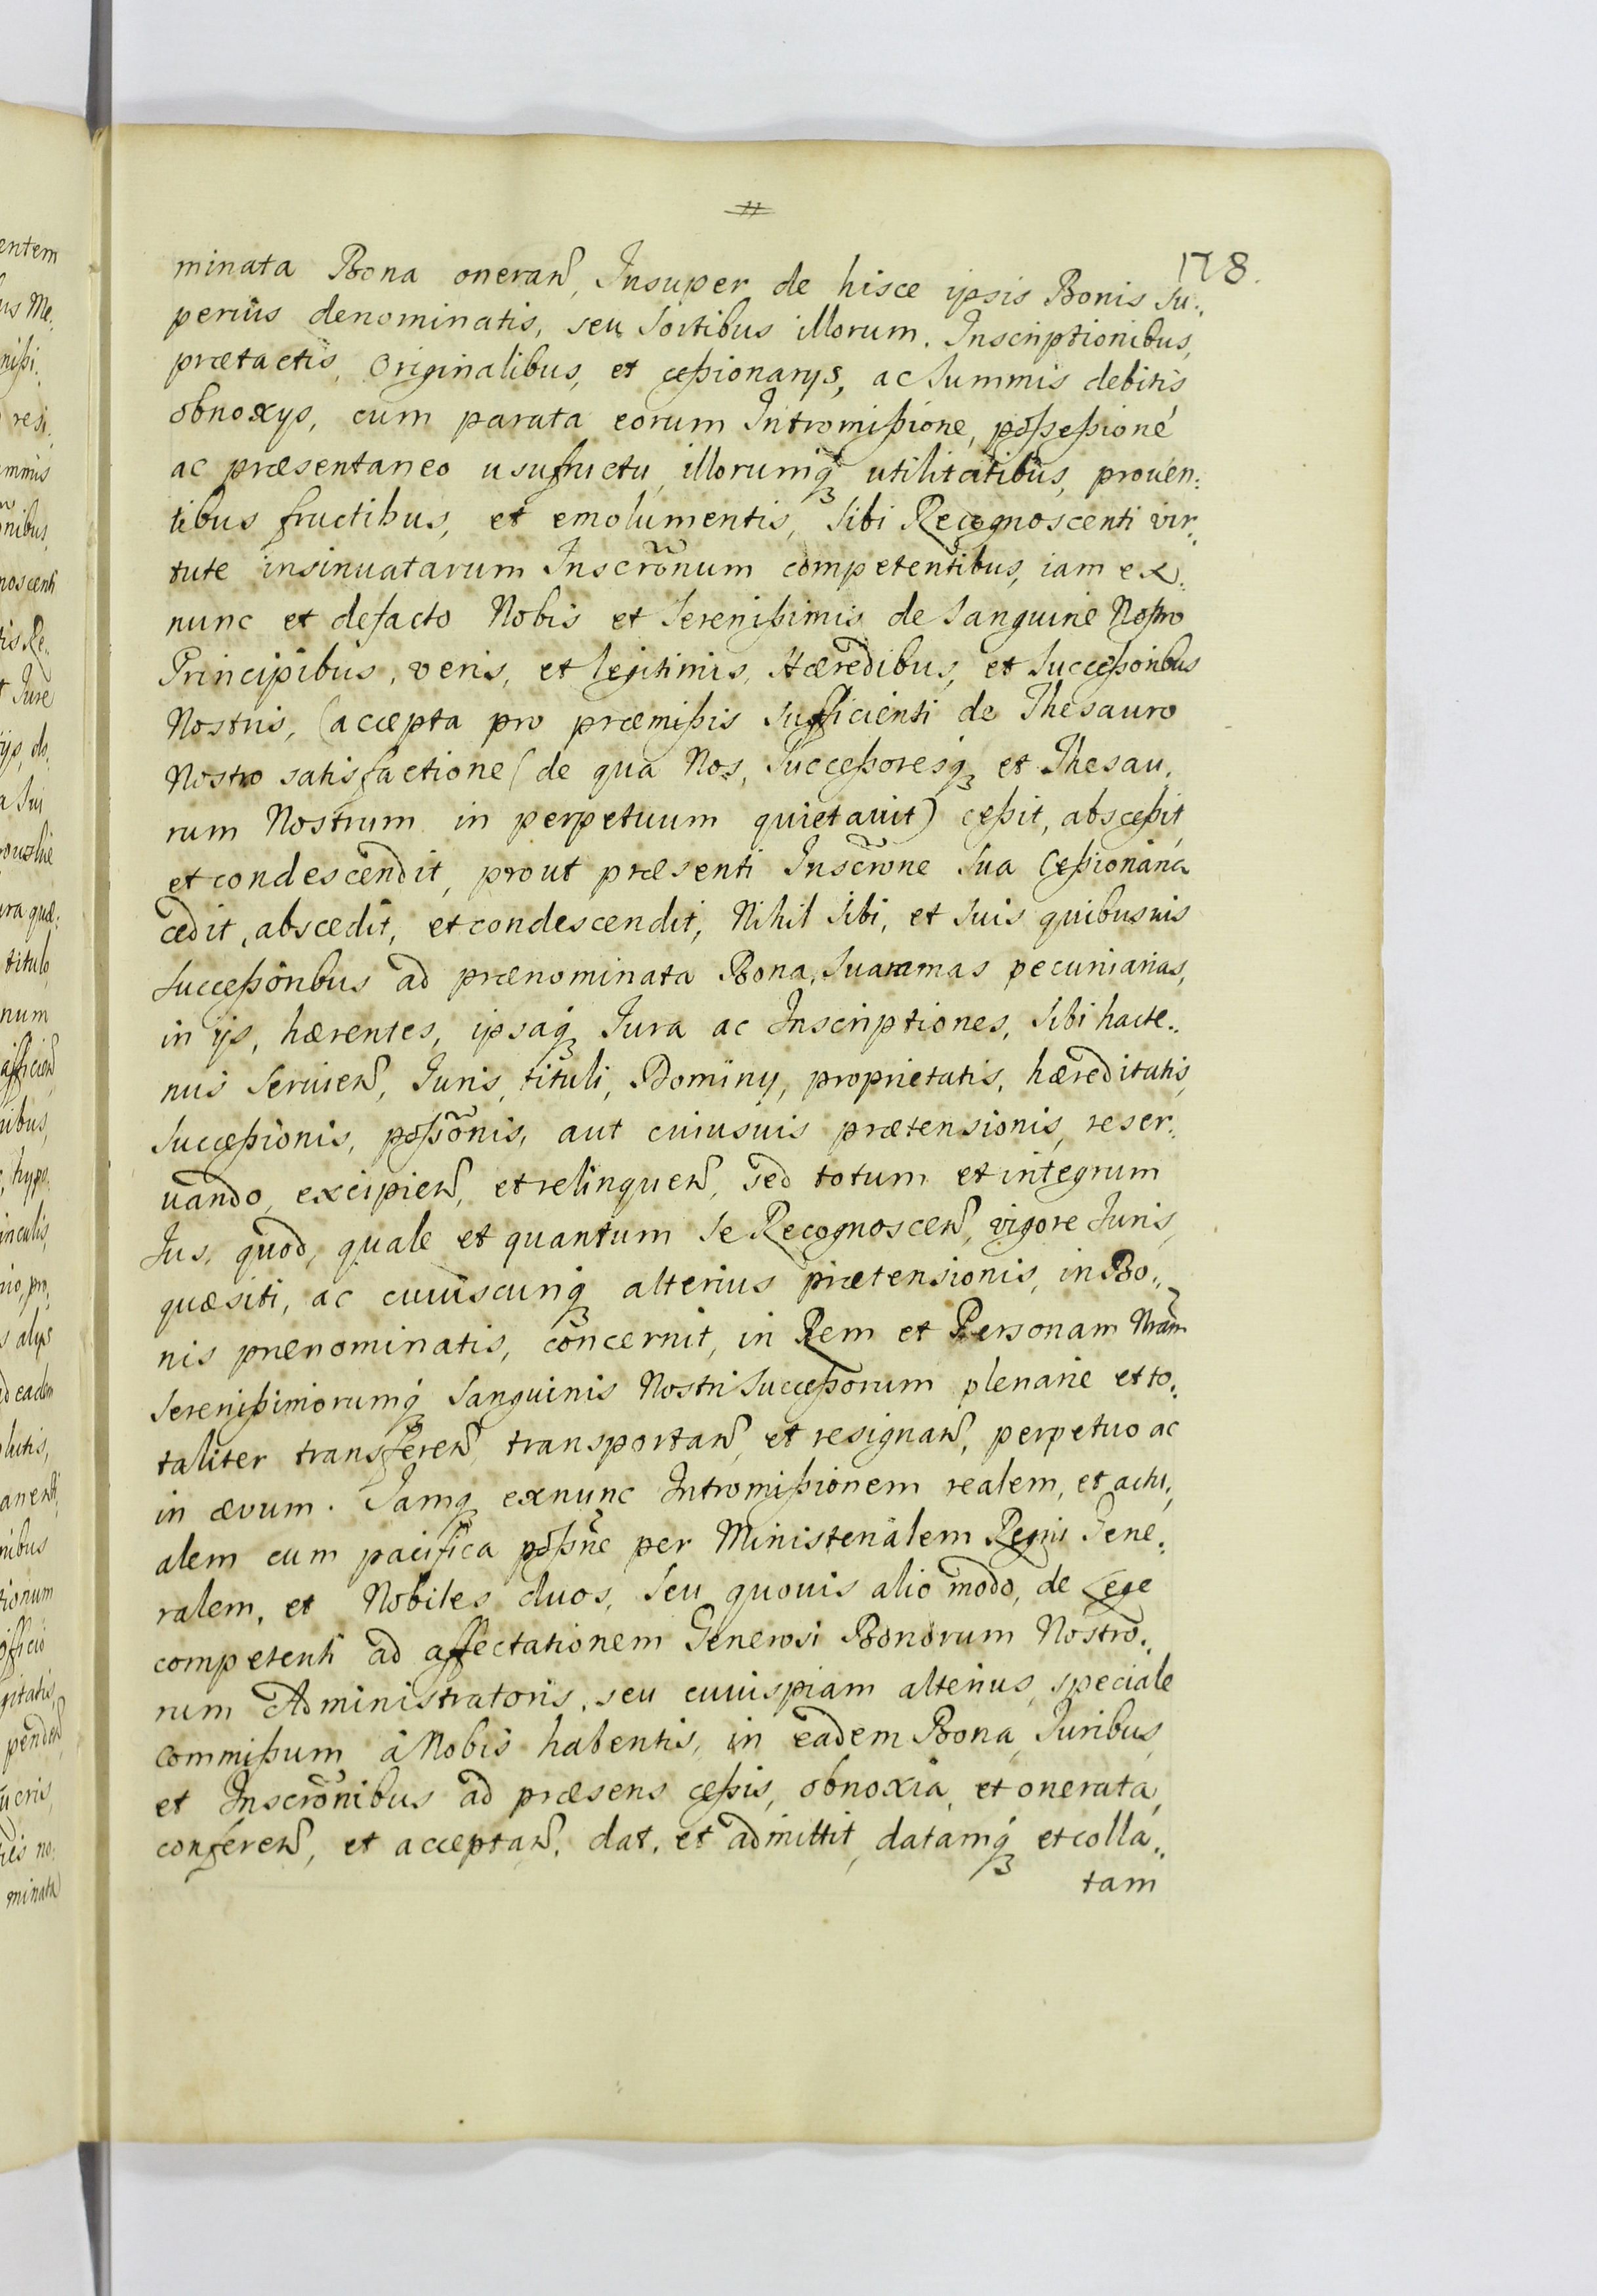 178.
minata Bona onerañ, Insuper de hisce ipsis Bonis Su„
perius denominatis, seu Sortibus illorum. Inscriptionibus,
prætactis, Originalibus, et ceßionarÿs, ac Summis debitis
obnoxÿs, cum parata eorum Intromißione, poßeßione
ac præsentaneo usufructu, illorumqꝫ utilitatibus, prouen„
tibus fructibus, et emolumentis, Sibi Recognoscenti vir„
tute insinuatarum Inscrõnum competentibus, iam ex„
nunc et defacto Nobis et Serenißimis de Sanguine Nostro
Principibus, veris, et legitimis, Hæredibus, et Succeßoribus
Nostris, (accepta pro præmißis Sufficienti de Thesauro
Nostro satisfactione (de qua Nos, Succeßoresqꝫ et Thesau„
rum Nostrum in perpetuum quietauit) ceßit, absceßit
et condescendit, prout præsenti Inscr̃one Sua Ceßionaria
cedit, abscedit, et condescendit, Nihil Sibi, et Suis quibusuis
Succeßoribus ad prænominata Bona, Summas pecuniarias,
in ijs, hærentes, ipsaqꝫ Iura ac Inscriptiones, Sibi hacte„
nus Seruieñ, Iuris, tituli, Dominÿ, proprietatis, hæreditatis,
Succeßionis, poßõnis, aut cuiusuis prætensionis, reser„
uando, excipieñ, et relinqueñ, Sed totum et integrum
Ius, quod, quale et quantum Se Recognosceñ, vigore Iuris,
quæsiti, ac cuiuscunqꝫ alterius prætensionis, in Bo„
nis prænominatis, concernit, in Rem et Personam Nr̃am
Serenißimorumqꝫ Sanguinis Nostri Succeßorum plenarie et to„
taliter transfereñ, transportañ, et resignañ, perpetuo ac
in ævum. Iamqꝫ exnunc Intromißionem realem, et actu„
alem cum pacifica poßñe per Ministerialem Regni Gene„
ralem, et Nobiles duos, Seu quouis alio modo, de Lege
competenti ad affectationem Generosi Bonorum Nostro„
rum Administratoris, seu cuiuspiam alterius, speciale
commißum à Nobis habentis, in eadem Bona, Iuribus,
et Inscrõnibus ad præsens ceßis, obnoxia, et onerata,
confereñ, et acceptañ, dat, et admittit, datamqꝫ et colla„
tam